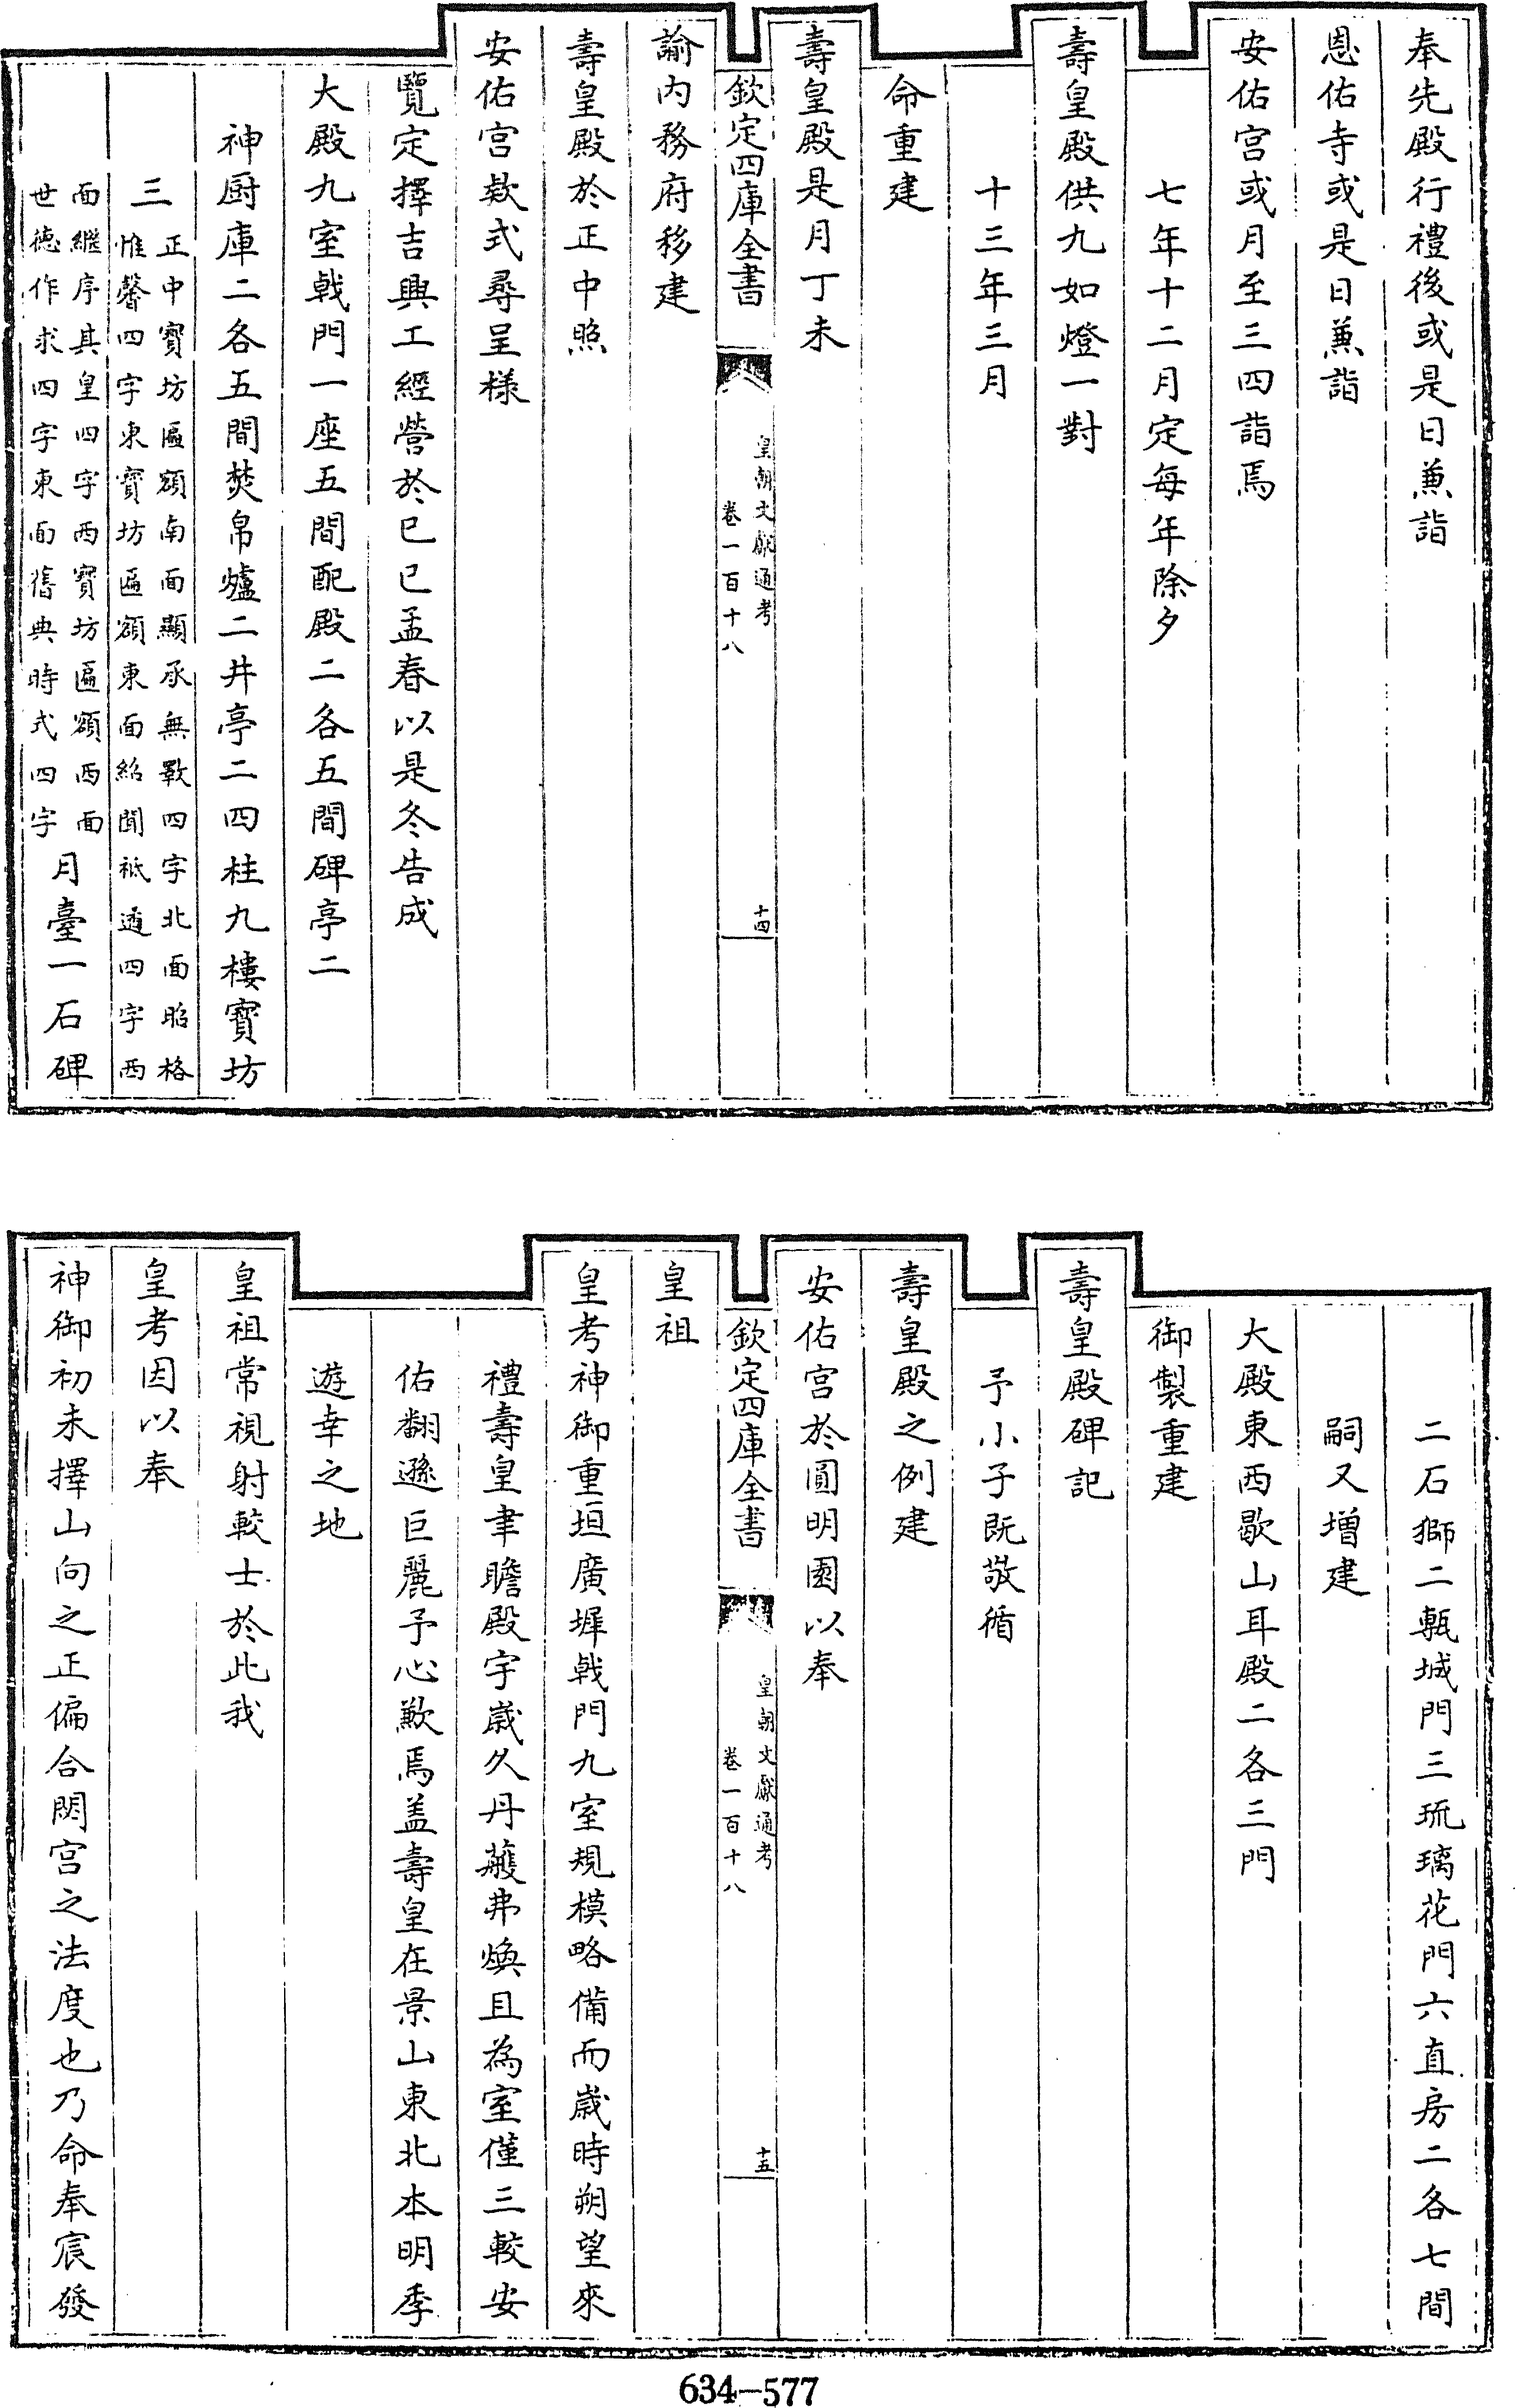 奉先殿行禮後或是日兼詣
恩佑寺或是日兼詣
安佑宮或月至三四詣焉
七年十二月定每年除夕
壽皇殿供九如燈一對
十三年三月
命重建
壽皇殿是月丁未
欽定四庫全書
皇朝文獻通考
卷一百十八
十四
諭內務府移建
壽皇殿於正中照
安佑宮欵式尋呈樣
覽定擇吉興工經營於己巳孟春以是冬告成
大殿九室戟門一座五間配殿二各五間碑亭二
神厨庫二各五間焚帛爐二井亭二四柱九樓寶坊
三正中寶坊匾額南面顯承無斁四字北面昭格
惟馨四字東寶坊匾額東面紹聞祗遹四字西
面繼序其皇四字西寶坊匾額西面
世德作求四字東面舊典時式四字月臺一石碑
二石獅二甎城門三琉璃花門六直房二各七間
嗣又增建
大殿東西歇山耳殿二各三門
御製重建
壽皇殿碑記
予小子既敬循
壽皇殿之例建
安佑宮於圓明園以奉
欽定四庫全書
皇朝文獻通考
卷一百十八
十五
皇祖
皇考神御重垣廣墀戟門九室規模略備而歲時朔望來
禮壽皇聿瞻殿宇歲久丹雘弗煥且為室僅三較安
佑翻遜巨麗予心歉焉盖壽皇在景山東北本明季
遊幸之地
皇祖常視射較士於此我
皇考因以奉
神御初未擇山向之正偏合閟宮之法度也乃命奉宸發
634-577